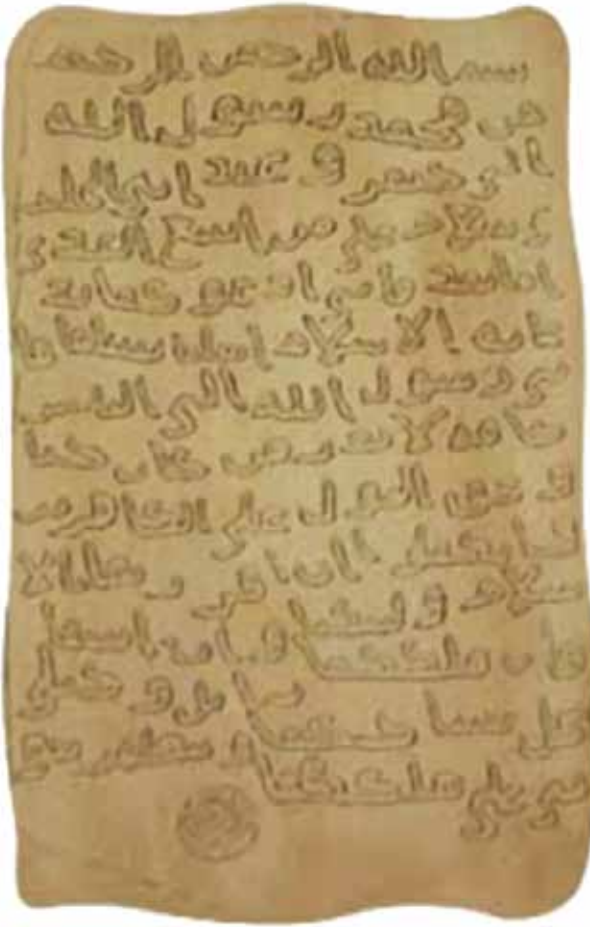 بسم الله الرحمن الرحيم
من محمد رسول الله
الى جيفر و عبد ابني الجلند
ى سلام على من اتبع الهدى
اما بعد فاني ادعوكما بد
عاية الاسلام اسلما تسلما فا
ني رسول الله الى الناس
كافة لانذر من كان حيا
و يحق القول على الكافرين
بالا
سلام وليتكما وان ابيتما
فان ملككما زايل و خيلي
تحل بساحتكما و تظهر نبو
تي على ملككما